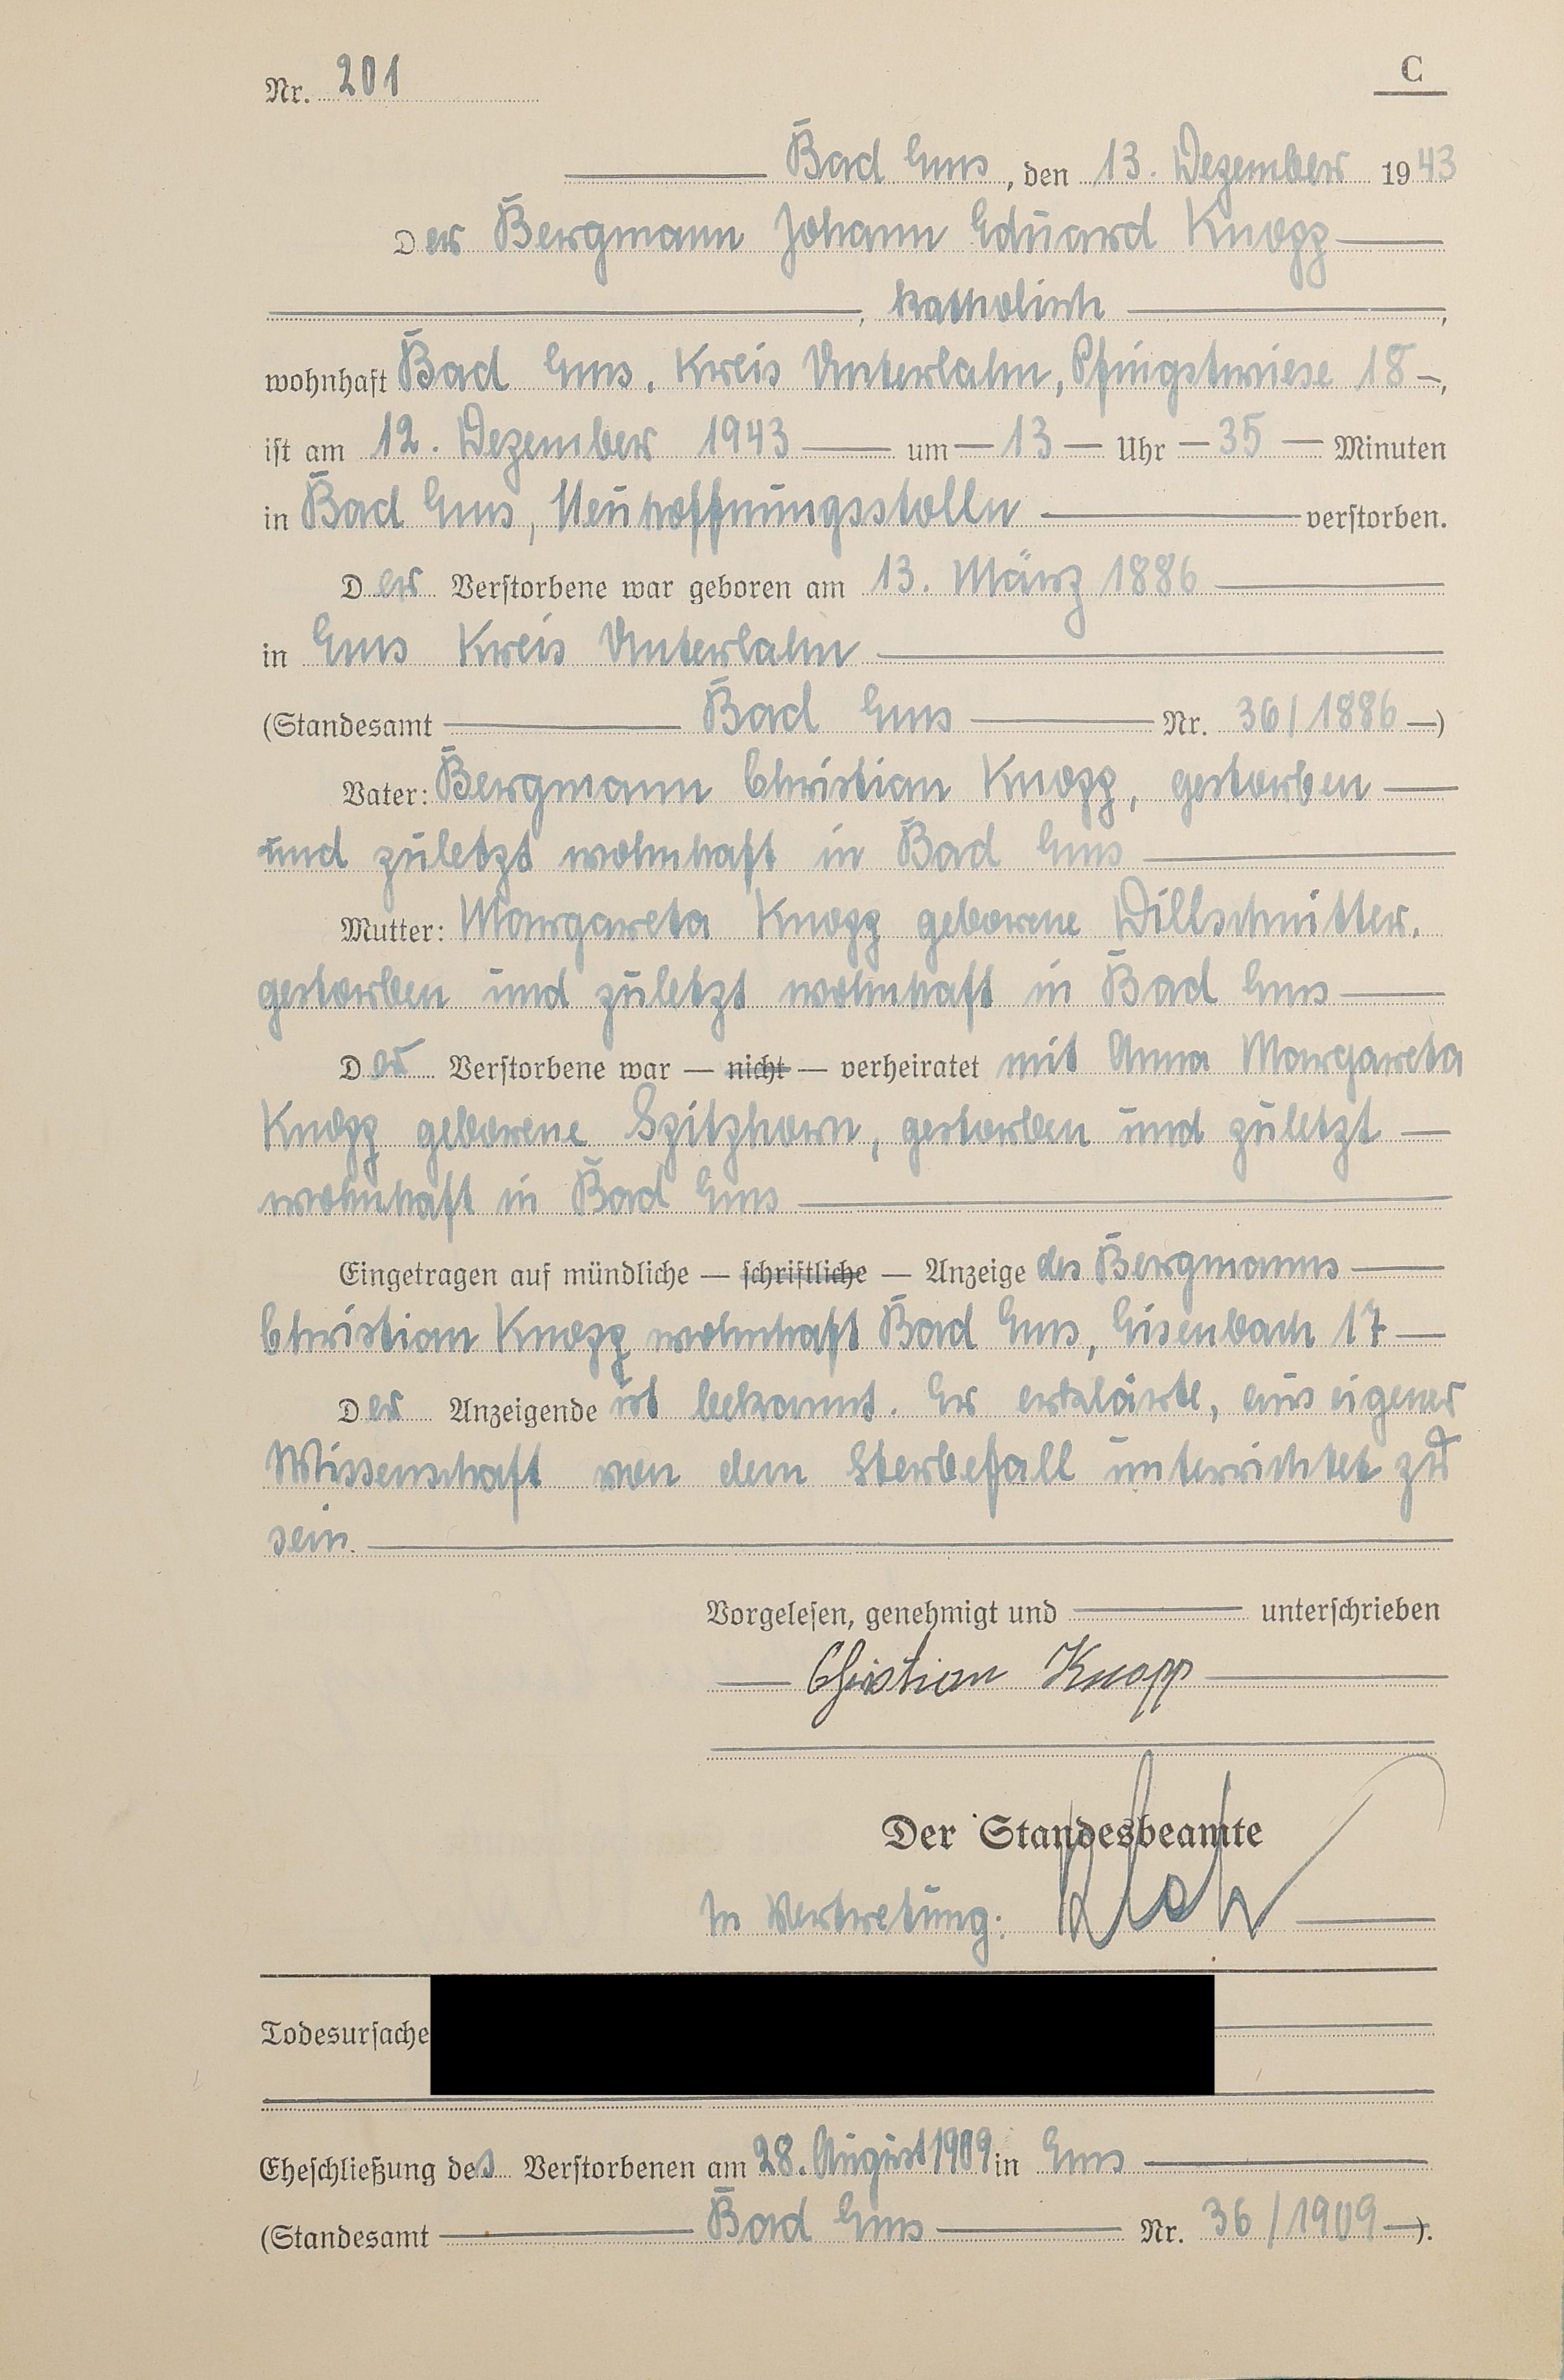 Nr. 201 C
Bad Ems, den 13. Dezember 1943
Der Bergmann Johann Eduard Knopp
, katholisch ,
wohnhaft Bad Ems, Kreis Unterlahn, Pfingstwiese 18 ,
ist am 12. Dezember 1943 um 13 Uhr 35 Minuten
in Bad Ems, Neuhoffnungsstolln verstorben.
Der Verstorbene war geboren am 13. März 1886
in Ems Kreis Unterlahn
(Standesamt Bad Ems Nr. 36/1886 )
Vater: Bergmann Christian Knopp, gestorben
und zuletzt wohnhaft in Bad Ems
Mutter: Margareta Knopp geborene Dillschnitter,
gestorben und zuletzt wohnhaft in Bad Ems
Der Verstorbene war — nicht — verheiratet mit Anna Margareta
Knopp geborene Spitzhorn, gestorben und zuletzt
wohnhaft in Bad Ems
Eingetragen auf mündliche — schriftliche — Anzeige des Bergmanns
Christian Knopp wohnhaft Bad Ems, Eisenbach 17
Der Anzeigende ist bekannt. Er erklärte, aus eigener
Wissenschaft von dem Sterbefall unterrichtet zu
sein.
Vorgelesen, genehmigt und unterschrieben
Christian Knopp
Der Standesbeamte
In Vertretung:
Todesursache
Eheschließung des Verstorbenen am 28. August 1909 in Ems
(Standesamt Bad Ems Nr. 36/1909 ).